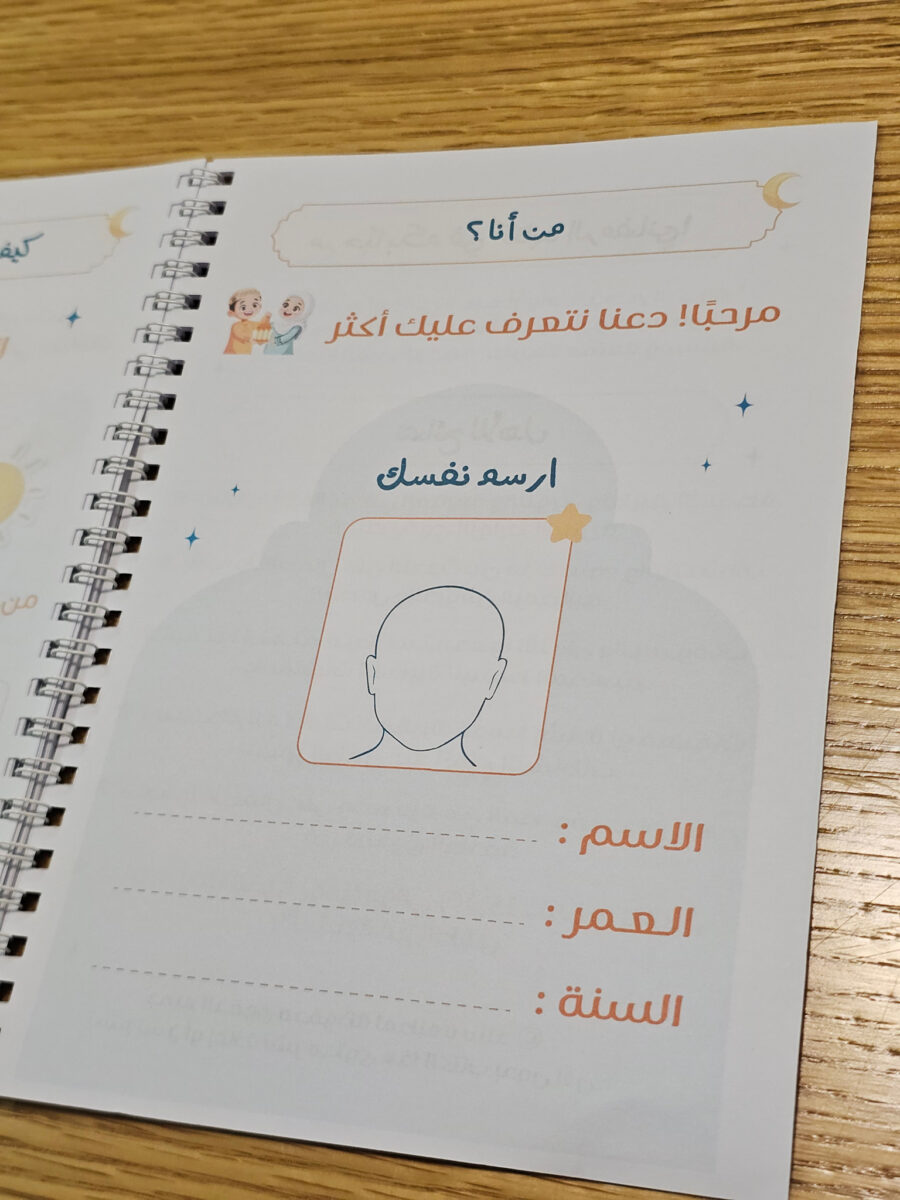 من أنا؟
مرحبًا! دعنا نتعرف عليك أكثر
ارسم نفسك
الاسم :
العمر :
السنة :
من